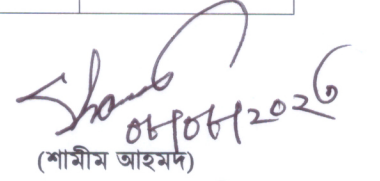 ০৮/০৮/২০২৩
(শামীম আহমদ)